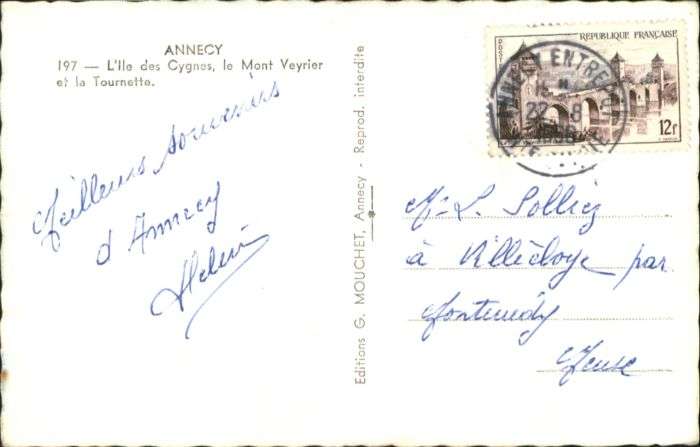 ANNECY
197 — L'Ile des Cygnes, le Mont Veyrier
et la Tournette.
Meilleurs souvenirs
d'Annecy
Editions G. MOUCHET, Annecy - Reprod. interdite
POSTES
REPUBLIQUE FRANÇAISE
12f
ENTREPOT
22-8
Mr L. Solliez
à Villécloye par
Montmédy
Meuse